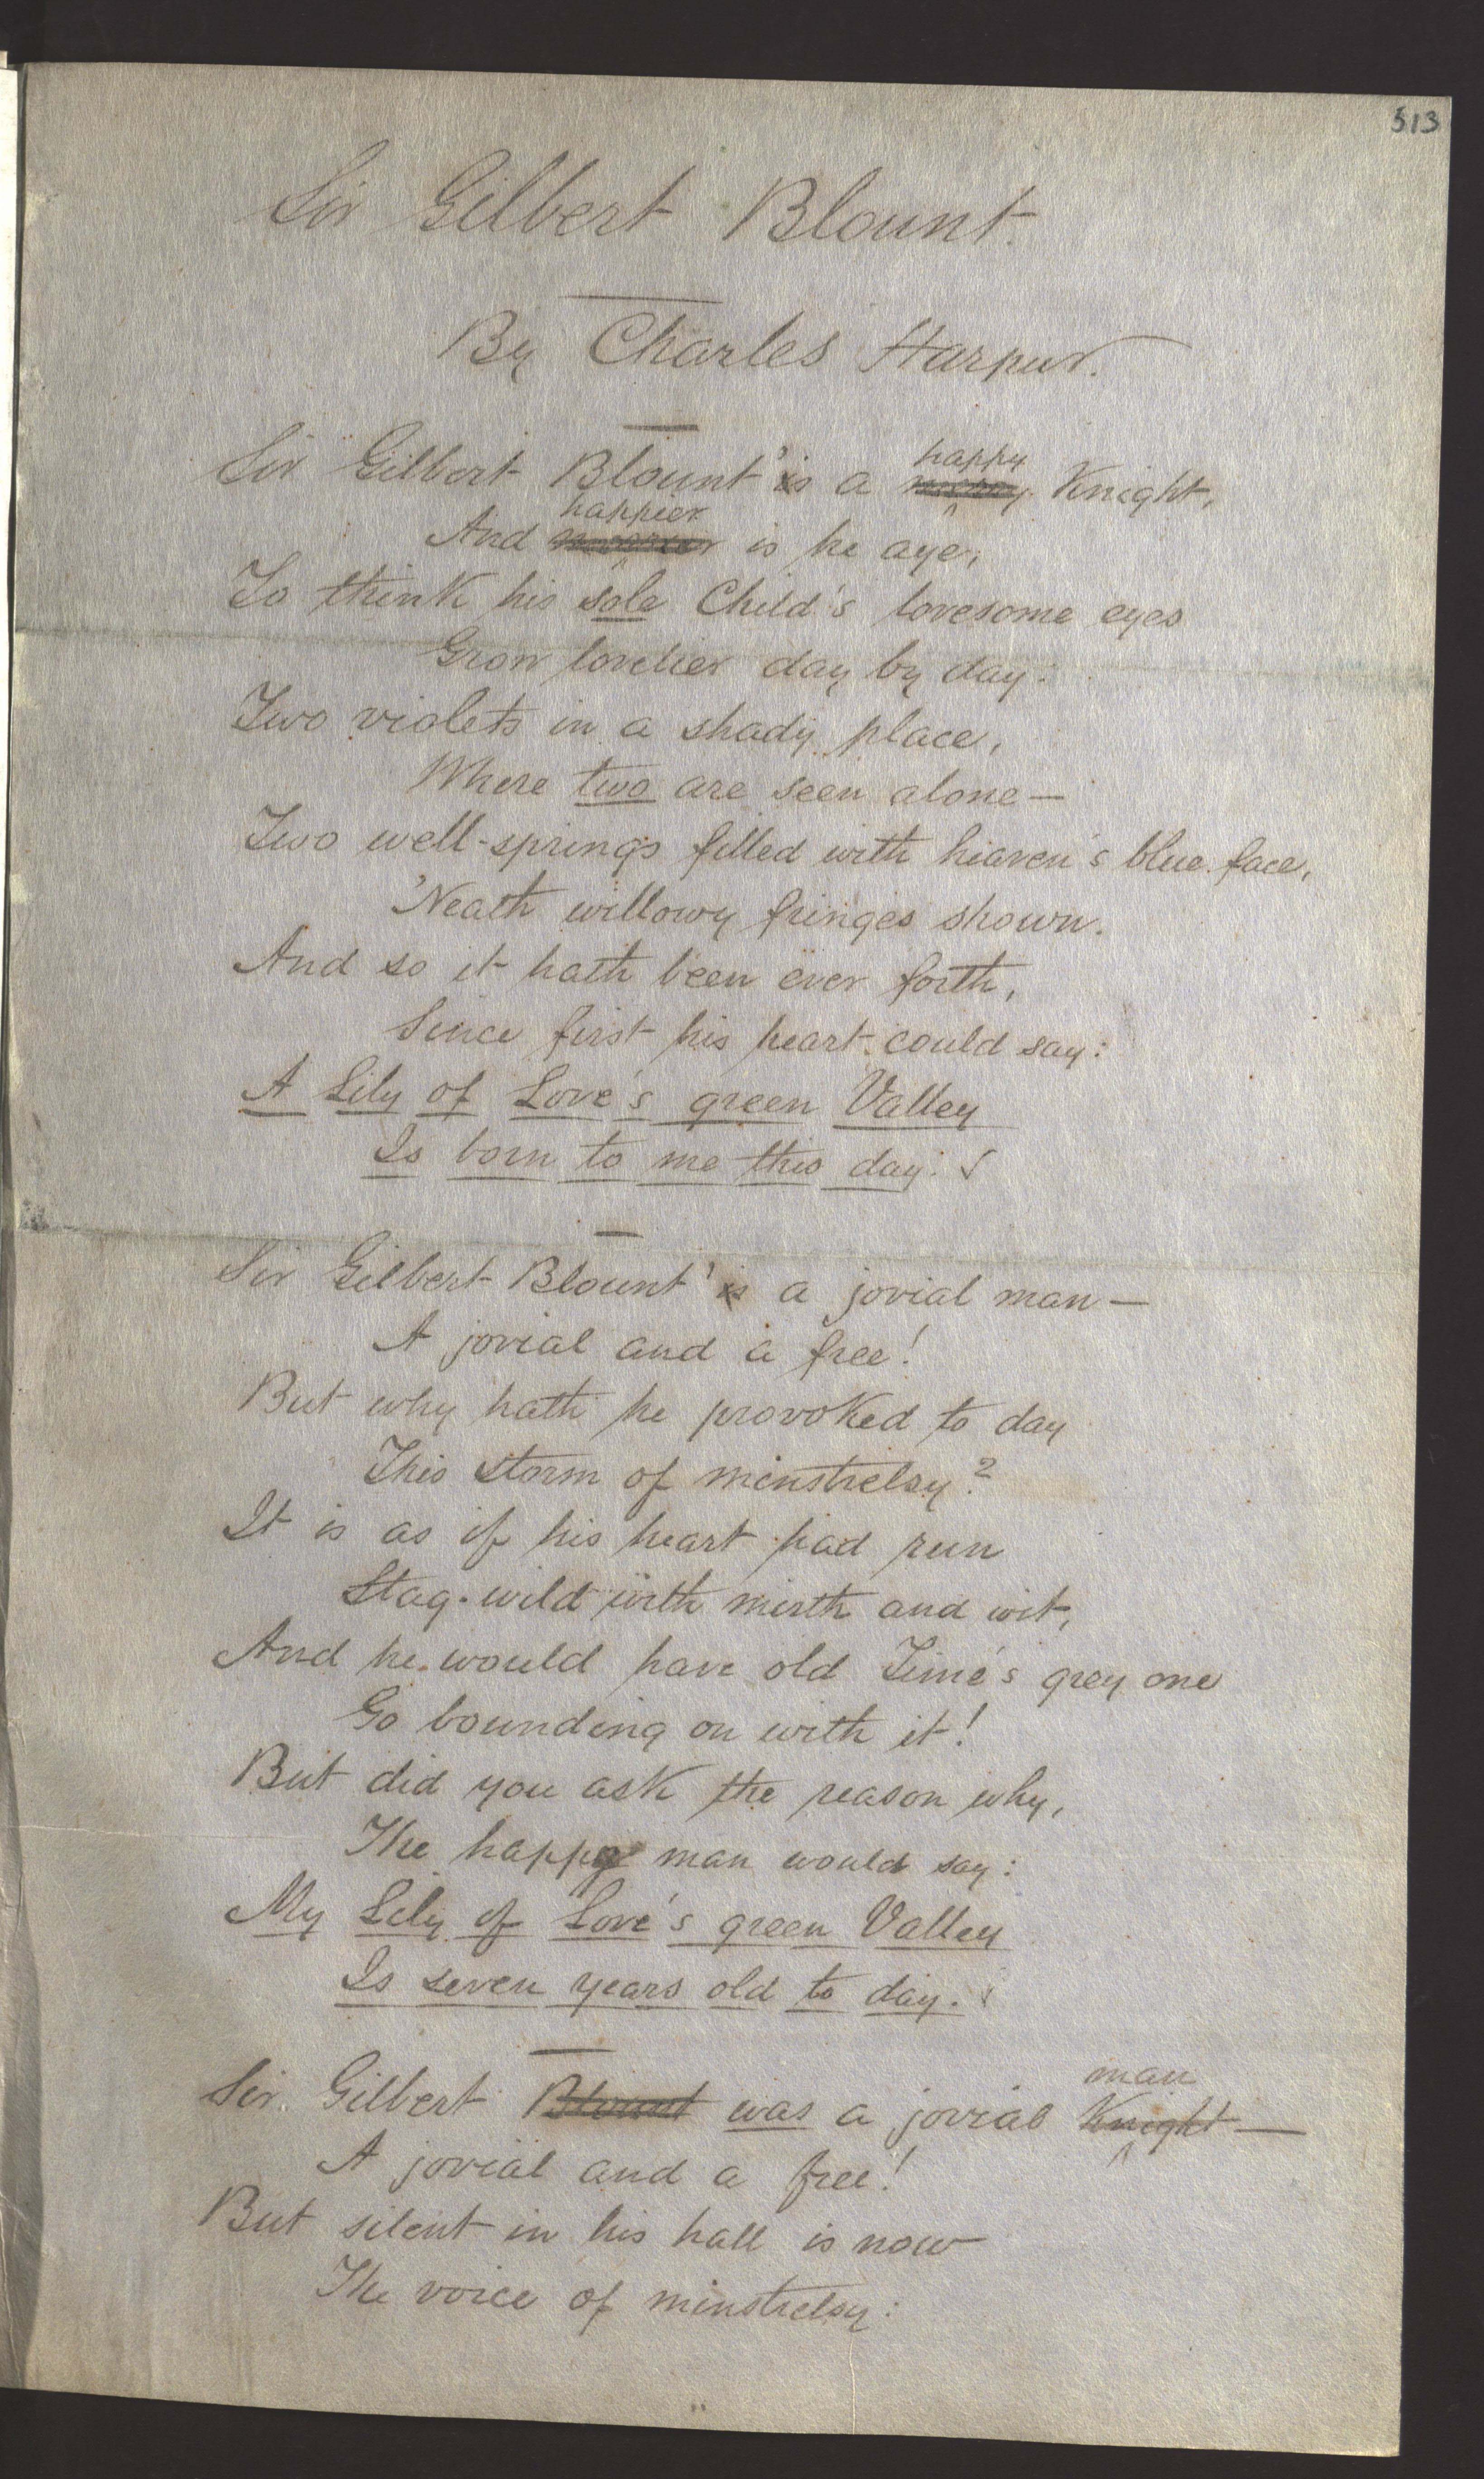 513
Sir Gilbert Blount.
By Charles Harpur.
Sir Gilbert Blount 's a happy Knight,
And happier is he aye,
To think his sole Child's lovesome eyes
Grow lovelier day by day:
Two violets in a shady place,
Where two are seen alone—
Two well-springs filled with heaven's blue face,
'Neath willowy fringes shown.
And so it hath been ever forth,
Since first his heart could say:
A Lily of Love's green Valley
Is born to me this day.
Sir Gilbert Blount 's a jovial man—
A jovial and a free!
But why hath he provoked to day
This storm of minstrelsy?
It is as if his heart had run
Stag-wild with mirth and wit,
And he would have old Time's grey one
Go bounding on with it!
But did you ask the reason why,
The happy man would say:
My Lily of Love's green Valley
Is seven years old to day.
Sir Gilbert Blount was a jovial Knight man—
A jovial and a free!
But silent in his hall is now
The voice of minstrelsy: